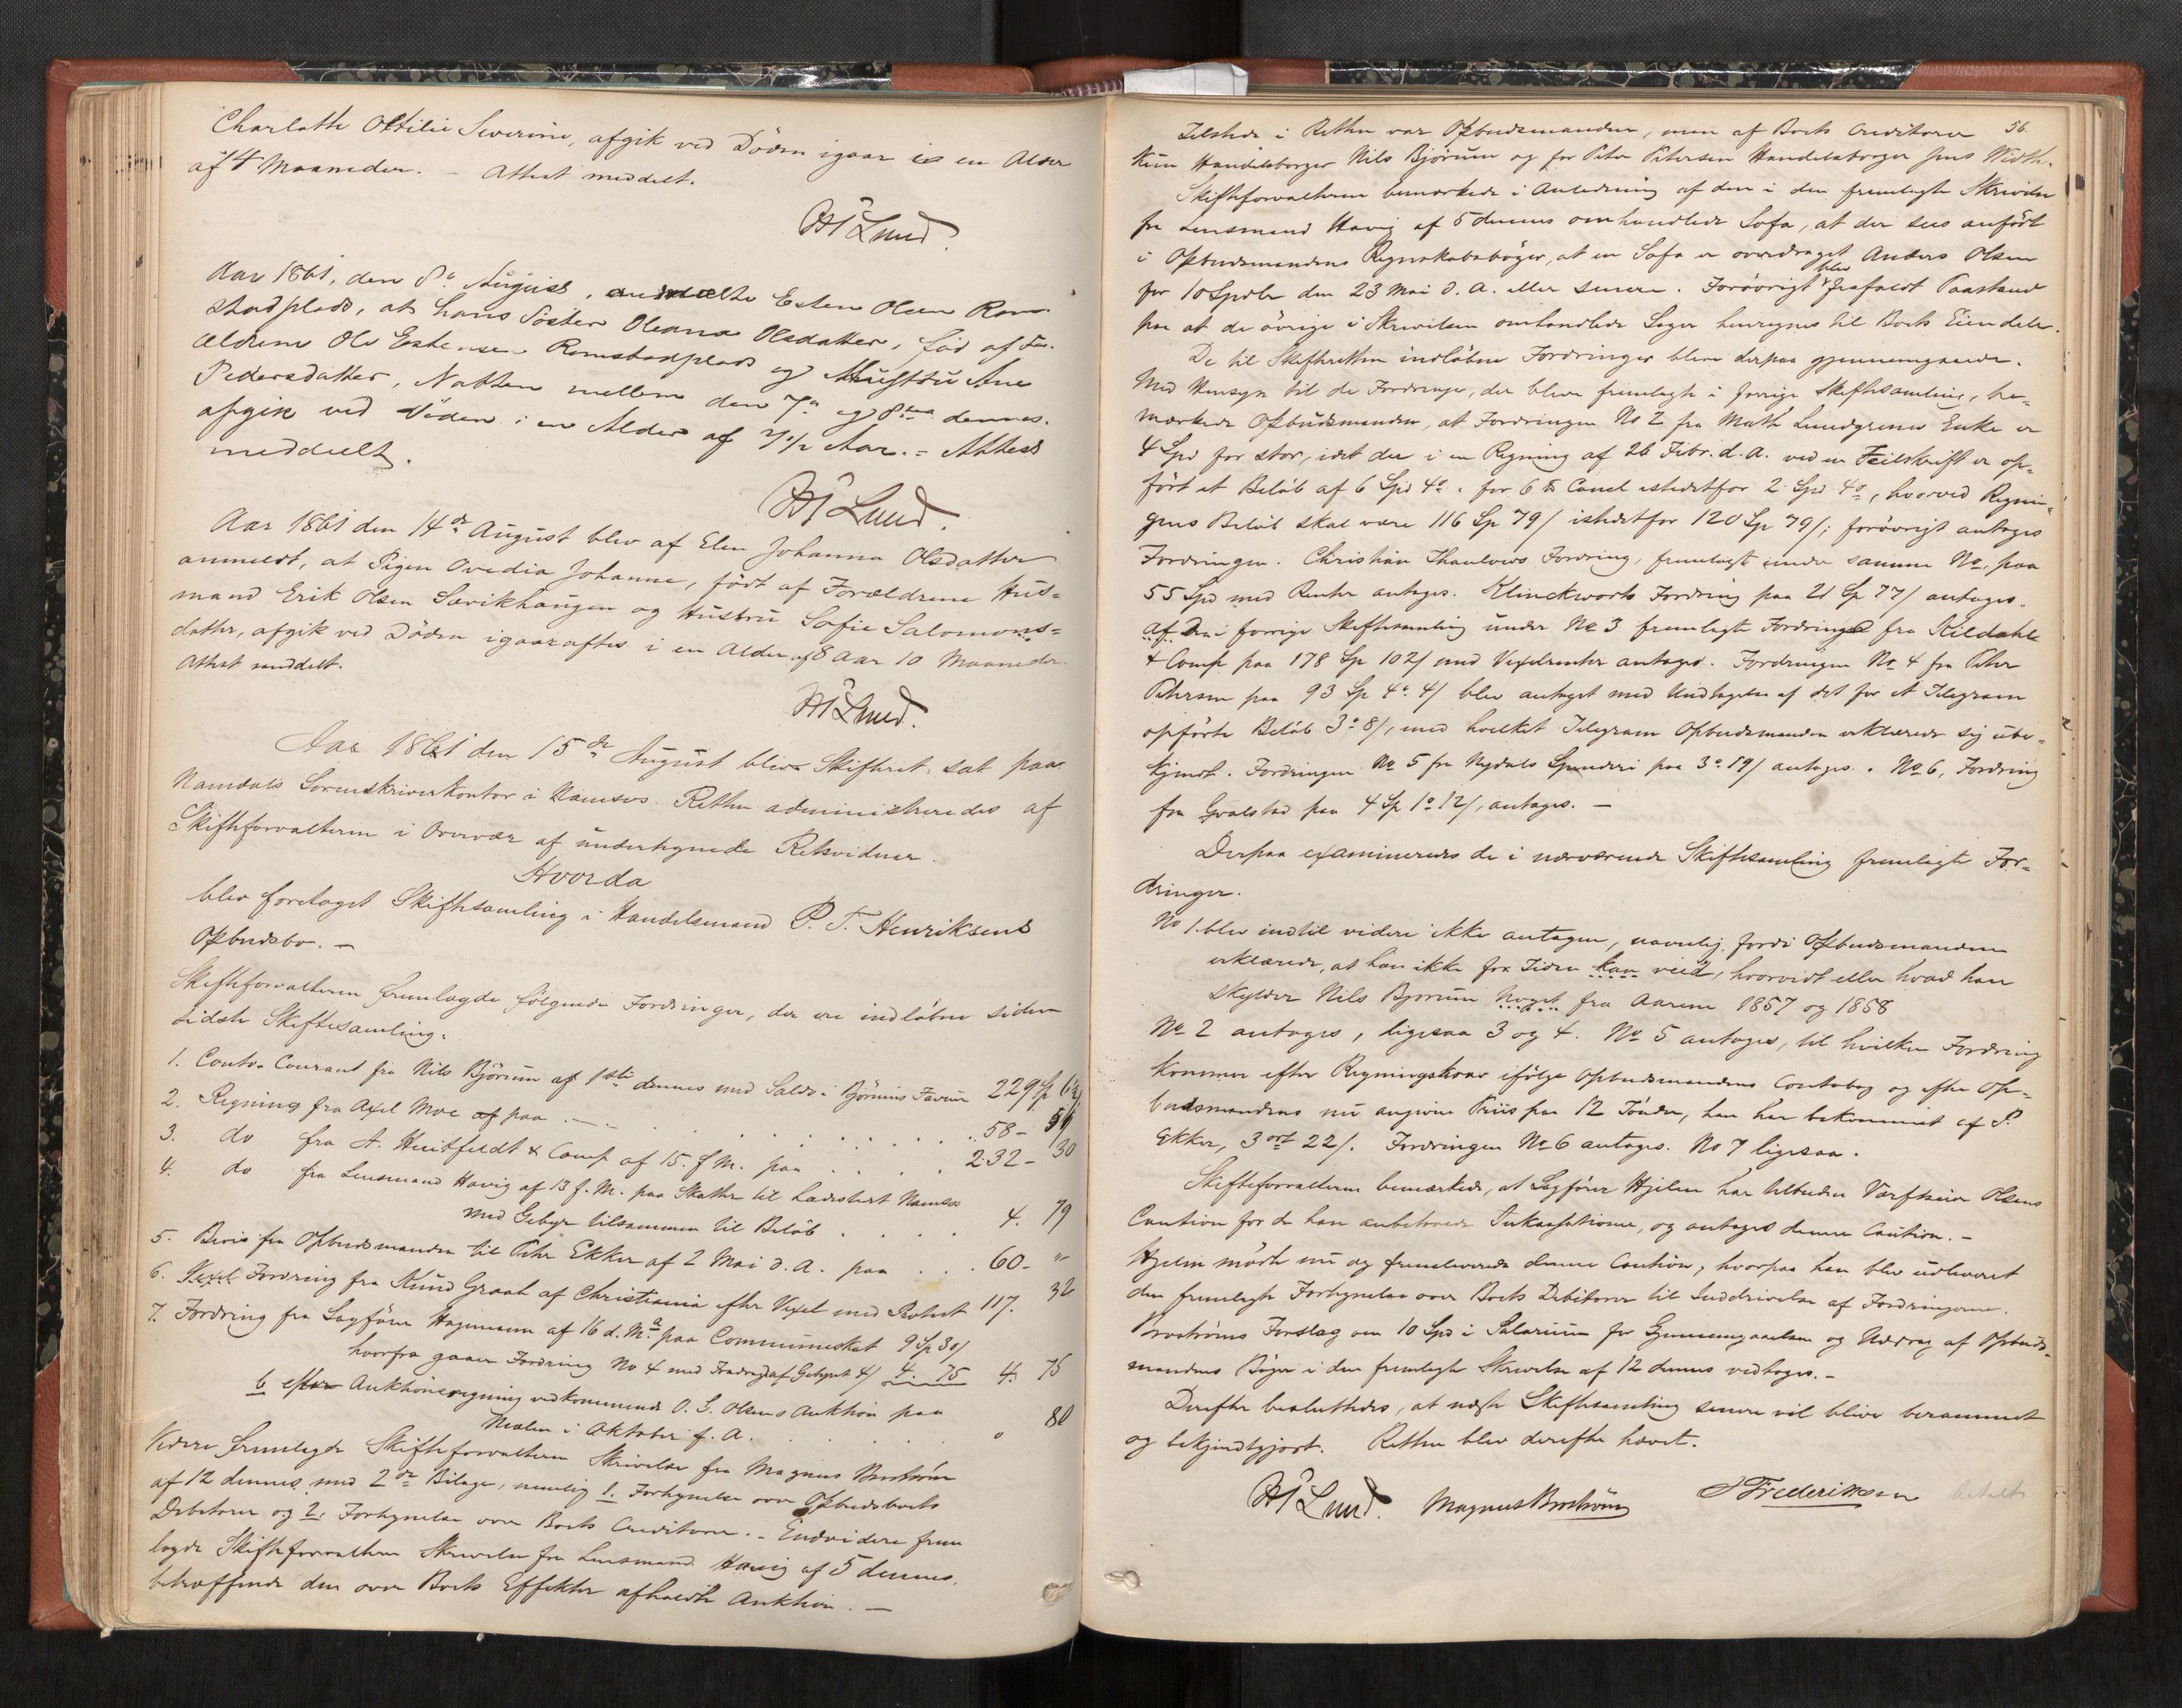 Charlotte Ottilie Severine, afgik ved Döden igaar i en Alder
af 4 Maaneder. – Attest meddelt.
Lund.
Aar 1861, den 8de August, anmeldte Esten Olsen Rom-
stadplads, at hans Söster Oleana Olsdatter, föd af For-
ældrene Ole Estensen Romstadplads og Hustru Ane
Pedersdatter, Natten mellem den 7de og 8de dennes
afgik ved Döden i en Alder af 7 1/2 Aar. – Attest
meddeelt.
Lund.
Aar 1861 den 14de August blev af Elen Johanna Olsdatter
anmeldt, at Pigen Ovedia Johanne, födt af Forældrene Hus=
mand Erik Olsen Sævikhaugen og Hustru Sofie Salomons=
datter, afgik ved Döden igaaraftes i en Alder af 8 Aar 10 Maaneder.
Attest meddelt.
Lund.
Aar 1861 den 15de August blev Skifteret sat paa
Namdals Sorenskriverkontor i Namsos. Retten administreredes af
Skifteforvalteren i Overvær af undertegnede Retsvidner.
Hvorda
blev foretaget Skiftesamling i Handelsmand P. T. Henriksens
Opbudsbo. –
Skifteforvalteren fremlagde fölgende Fordringer, der ere indlöbne siden
sidste Skiftesamling.
1. Conto-Courant fra Nils Björum af 1ste dennes med Saldo i Bjørums Faveur 229 Sp
2. Regning fra Axel Moe af paa 58 –
3. do fra A. Huitfeldt & Comp af 15. f. M. paa 232 – 30
4. do fra Lensmand Havig af 13 f. M. paa Skatter til Ladestedet Namsos
med Gebyr tilsammen til Beløb 4. 79
5. Beviis fra Opbudsmanden til Peter Ekker af 2 Mai d. A. paa 60 – "
6. Vexel Fordring fra Knud Graah af Christiania efter Vexel med Protest 117. 32
7. Fordring fra Sagförer Hagemann af 16 d. M. paa Communeskat 9 Sp 30/
hvorfra gaaer Fordring No 4 med Fradrag af Gebyret 4/ 4. 75 4. 75
b efter Auktionsregning vedkommende O. S. Olsens Auktion paa
i Oktober f. A. 80
Videre fremlagde Skifteforvalteren Skrivelse fra Magnus Broström
af 12 dennes med 2de Bilage, nemlig 1. Fortegnelse over Opbudsboets
Debitorer og 2. Fortegnelse over Boets Creditorer. – Endvidere frem
lagde Skifteforvalteren Skrivelse fra Lensmand Havig af 5 dennes,
betræffende den over Boets Effekter afholdte Auktion. –
56.
Tilstede i Retten var Opbudsmanden, men af Boets Creditorer
kun Handelsborger Nils Bjørum og for Peter Petersen Handelsborger Jens Width.
Skifteforvalteren bemærkede i Anledning af den i den fremlagte Skrivelse
fra Lensmand Havig af 5 dennes omhandlede Sofa, at der sees anfört
i Opbudsmandens Regnskabsböger, at en Sofa er overdraget Anders Olsen
for 10 Spdlr den 23 Mai d. A. eller senere. Forövrigt blev frafaldt Paastand
paa at de övrige i Skrivelsen omhandlede Sager henregnes til Boets Eiendele.
De til Skifteretten indlöbne Fordringer bleve derpaa gjennemgaaede.
Med Hensyn til de Fordringer, der bleve fremlagte i forrige Skiftesamling, be=
mærkede Opbudsmanden, at Fordringen No 2 fra Math Lundgreens Enke er
4 Spd for stor, idet der i en Regning af 26 Febr. d. A. ved en Feilskrift er op=
fört et Beløb af 6 Spd 4 for 6 Canel istedetfor 2 Spd 4, hvorved Regnin=
gens Beløb skal være 116 Sp 79/ istedetfor 120 Sp 79/; forövrigt antoges
Fordringen. Christian Thaulows Fordring, fremlagt under samme No, paa
55 Spd med Renter antoges. Klinckworts Fordring paa 21 Sp 77/ antoges.
af Den i forrige Skiftesamling under No 3 fremlagte Fordring fra Kildahl
& Comp paa 178 Sp 102/ med Vexelrenter antoges. Fordringen No 4 fra Peter
Petersen paa 93 Sp 4 4/ blev antaget med Undtagelse af det for et Telegram
opförte Beløb 3 8/, med hvilket Telegram Opbudsmanden erklærede sig ube=
kjendt. Fordringen No 5 fra Nydals Spinderi paa 3 19/ antoges. No 6, Fordring
fra Gvalstad paa 4 Sp 1 12/, antages. –
Derpaa examineredes de i nærværende Skiftesamling fremlagte For=
dringer.
No 1. blev indtil videre ikke antagen, navnlig fordi Opbudsmanden
erklærede, at han ikke for Tiden kan veed, hvorvidt eller hvad han
skylder Nils Bjorum noget fra Aarene 1857 og 1858
No 2 antoges, ligesaa 3 og 4. No 5 antoges, til hvilken Fordring
kommer efter Regningskrav ifölge Opbudsmandens Contobog og efter Op=
budsmandens nu angivne Priis paa 12 Tönder, han har bekommet af P.
Ekker, 3 ort 22/. Fordringen No 6 antages. No 7 ligesaa.
Skifteforvalteren bemærkede, at Sagförer Hjelm har tilbuden Værftseier Olsens
Caution for de ham anbetroede Inkassationer, og antages denne Caution. –
Hjelm mödte nu og fremleverede denne Caution, hvorpaa han blev udleveret
den fremlagte Fortegnelse over Boets Debitorer til Inddrivelse af Fordringerne.
Broströms Forslag om 10 Spd i Salarium for Gjennemgaaelsen og Uddrag af Opbuds=
mandens Böger i den fremlagte Skrivelse af 12 dennes vedtoges. –
Derefter besluttedes, at næste Skiftesamling senere vil blive berammet
og bekjendtgjort. Retten blev derefter hævet.
Lund. Magnus Broström Frederiksen